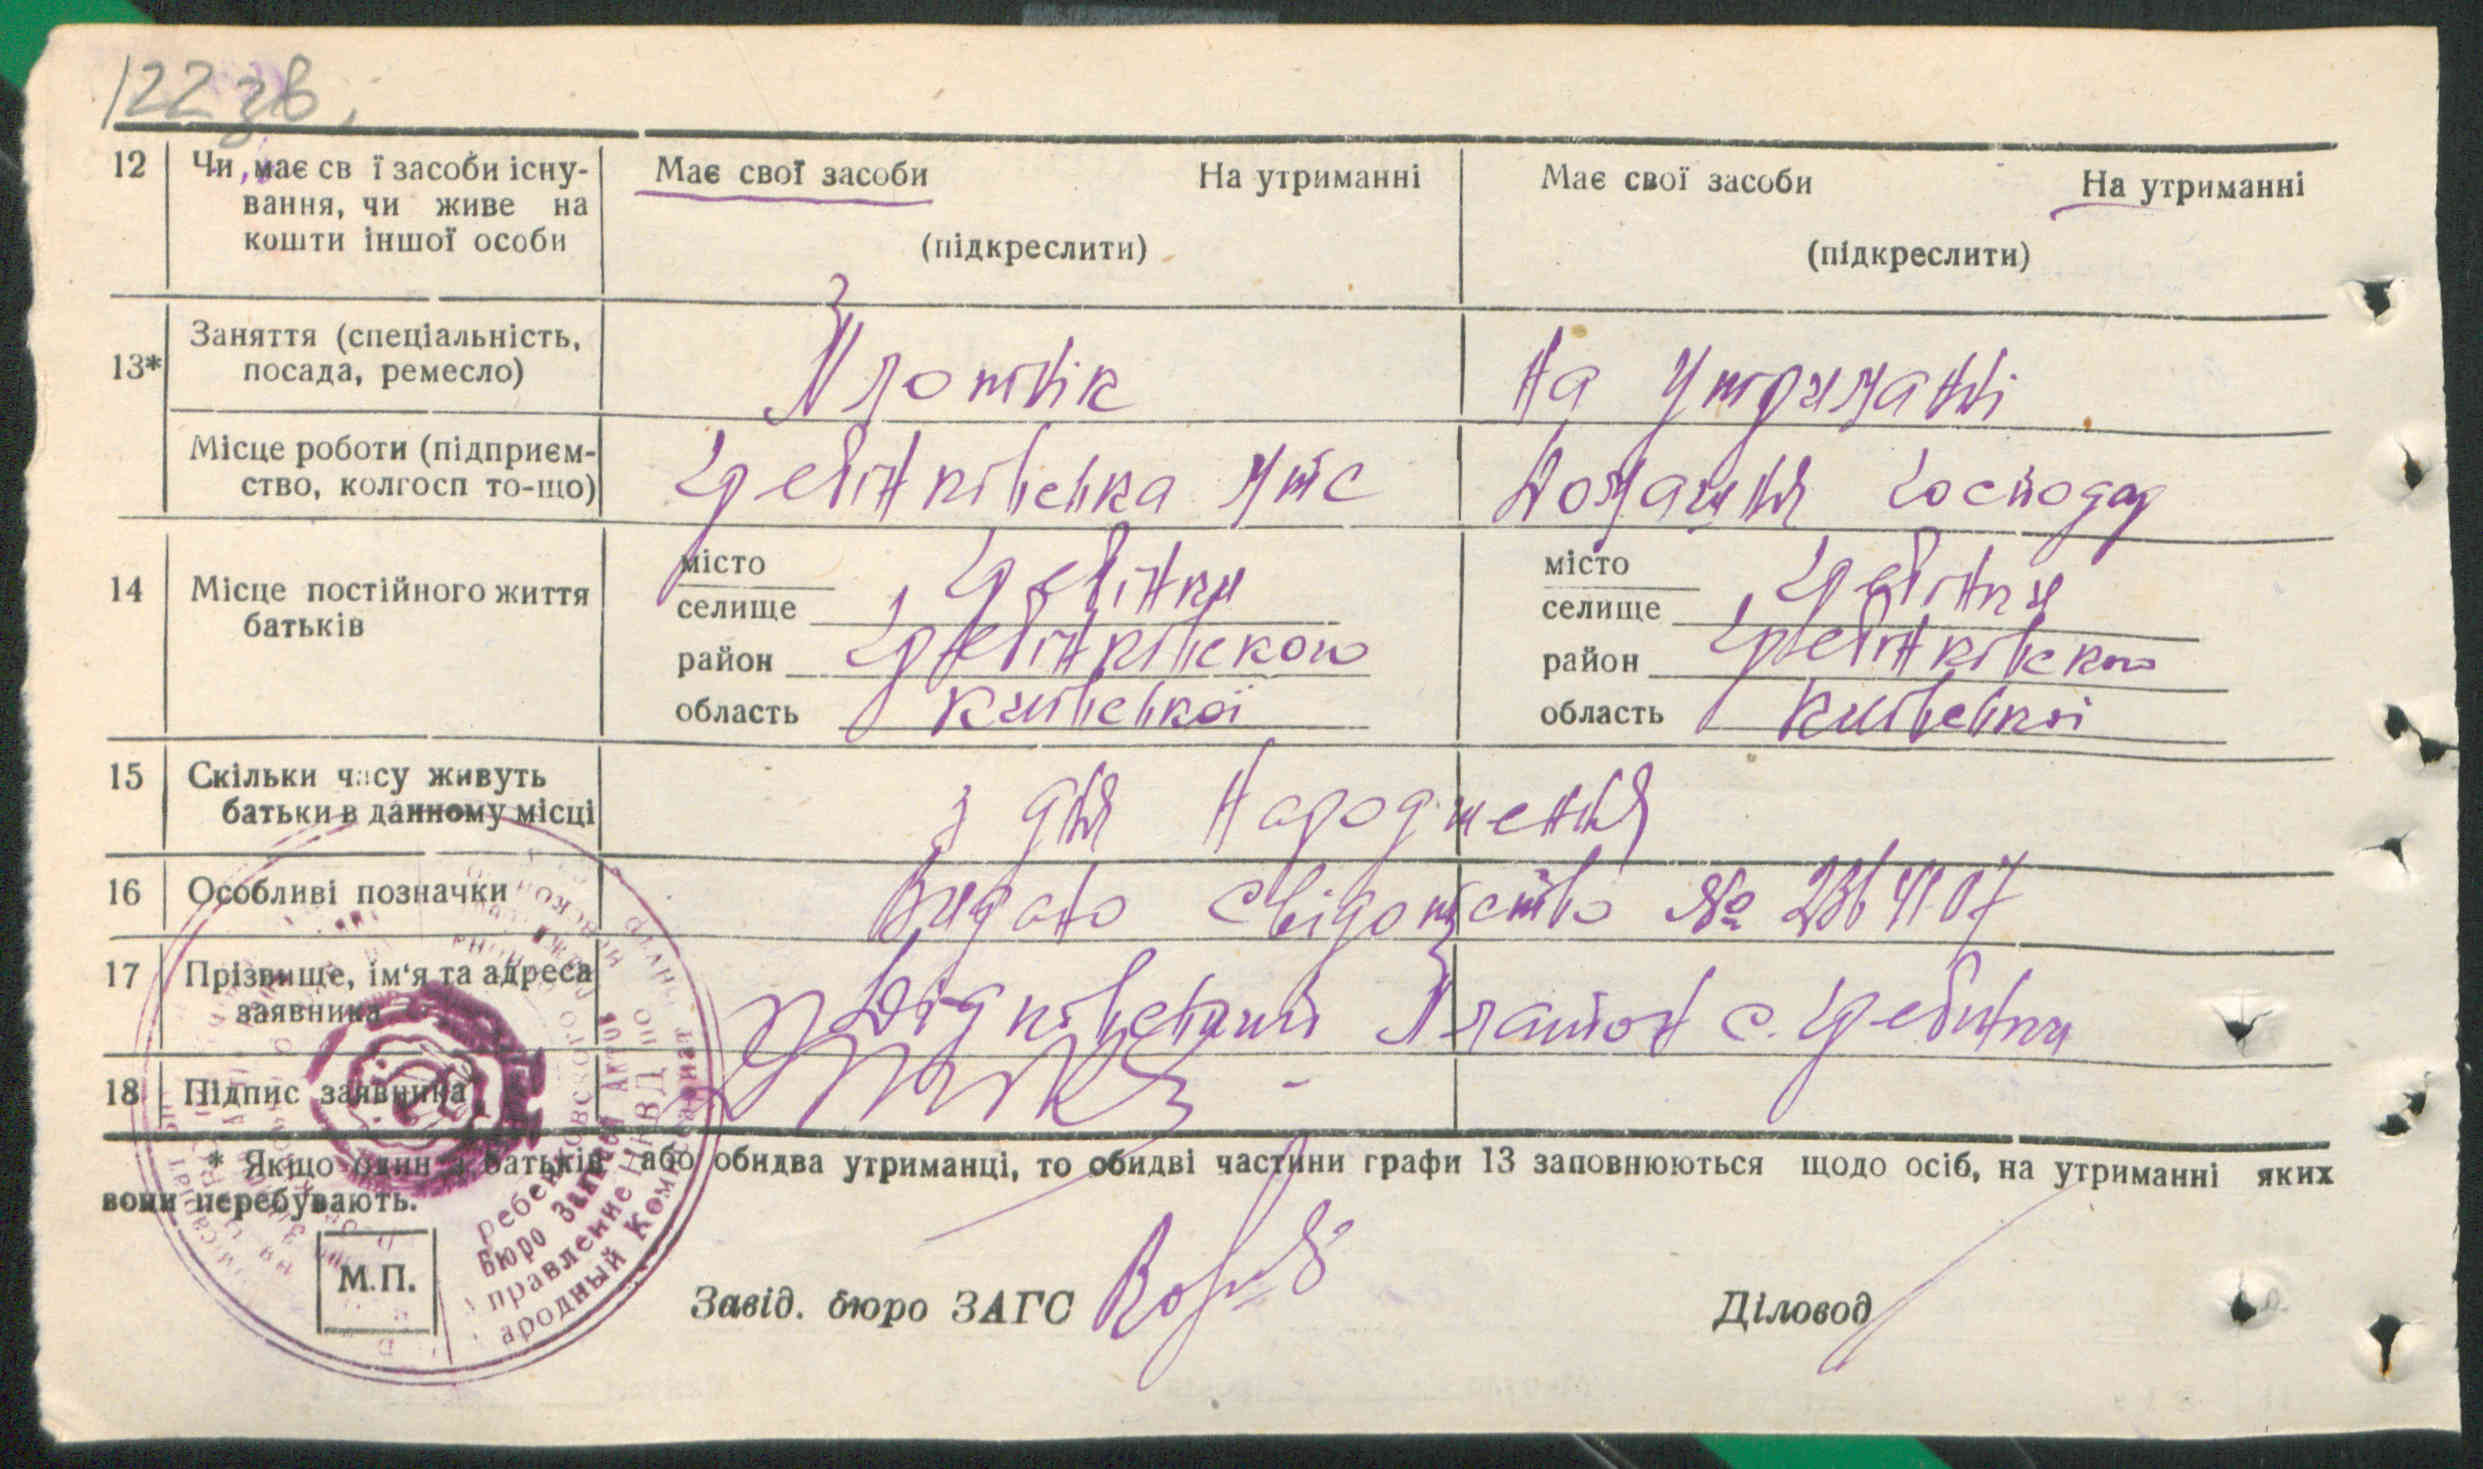 122 зв.
12 Чи має св ї засоби існу- Має свої засоби На утриманні Має свої засоби На утриманні
вання, чи живе на
кошти іншої особи (підкреслити) (підкреслити)
13* Заняття (спеціальність, Плотнік На утриманні
посада, ремесло)
Місце роботи (підприєм- Гребінківська мтс Домашня господар
ство, колгосп то-що)
14 Місце постійного життя
батьків
місто
селище Гребінки
район Гребінківского
область Київської
місто
селище Гребінки
район Гребінківского
область Київської
15 Скільки часу живуть з дня народження
батьки в данному місці
16 Особливі позначки Видано свідоцтво №
17 Прізвище, ім'я та адреса Дідківський Платон с. Гребинки
заявника
18 Підпис заявника
* Якщо один з батьків або обидва утриманці, то обидві частини графи 13 заповнюються щодо осіб, на утриманні яких
вони перебувають.
М.П.
Завід. бюро ЗАГС Діловод